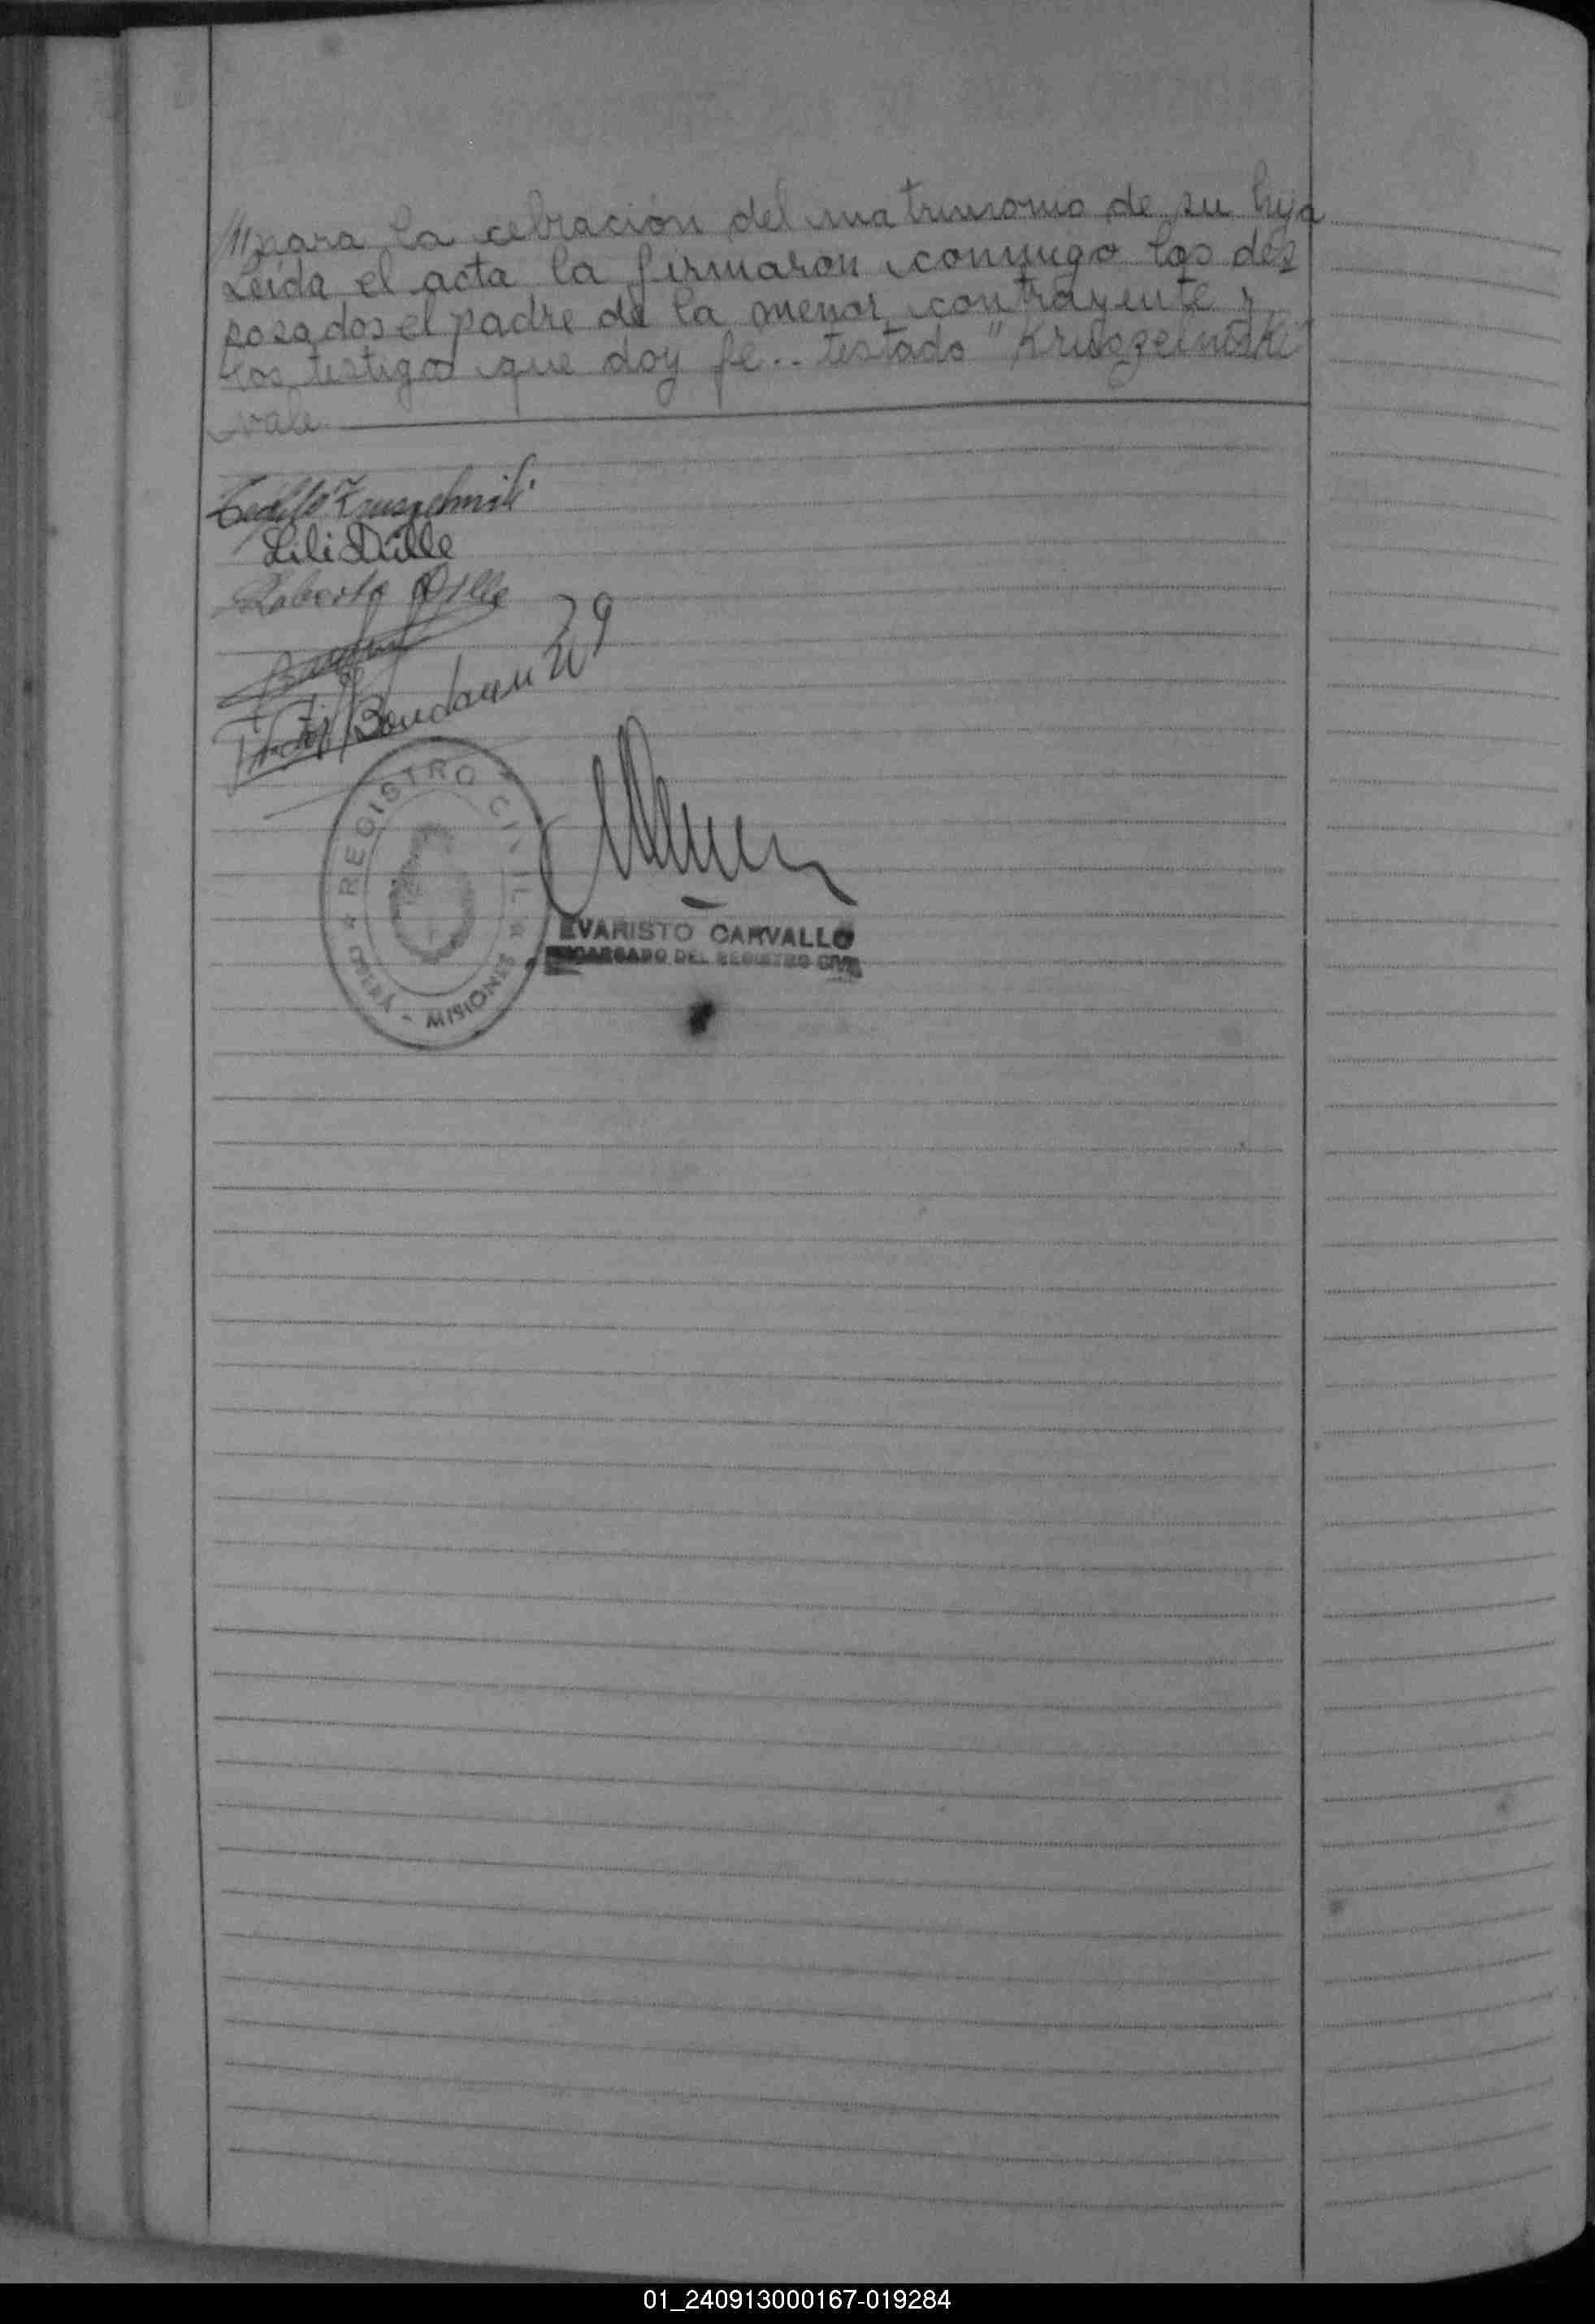 ///para la cebración del matrimonio de su hija
Leída el acta la firmaron conmigo los des
posados el padre de la menor contrayente y
los testigos que doy fe.. testado "Kruszelniski"
vale
Lili Dülle
Roberto Dülle
REGISTRO CIVIL
MISIONES
EVARISTO CARVALLO
ENCARGADO DEL REGISTRO CIVIL
01_240913000167-019284